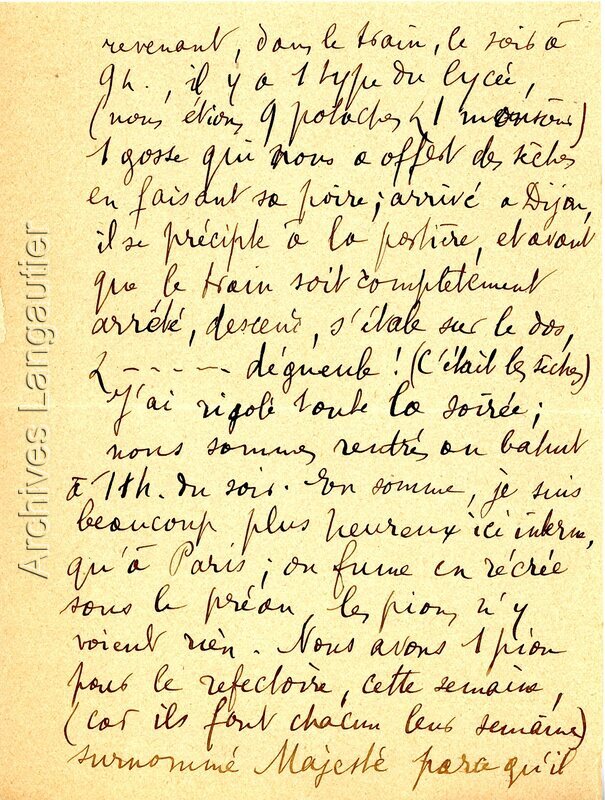 revenant, dans le train, le soir à
9h., il y a 1 type du lycée,
(nous étions 9 potaches & 1 monsieur)
1 gosse qui nous a offert des sèches
en faisant sa poire ; arrivé a Dijon,
il se précipte à la portière, et avant
que le train soit complètement
arrêté, descend, s'étale sur le dos,
& - - - - - dégueule ! (C'était les sèches)
J'ai rigolé toute la soirée ;
nous sommes rentrés au bahut
à 11h. du soir. En somme, je suis
beaucoup plus heureux ici interne,
qu'à Paris ; on fume en récrée
sous le préau, les pions n'y
voient rien. Nous avons 1 pion
pour le refectoire, cette semaine,
(car ils font chacun leur semaine)
surnommé Majesté parce qu'il
Archives Langautier